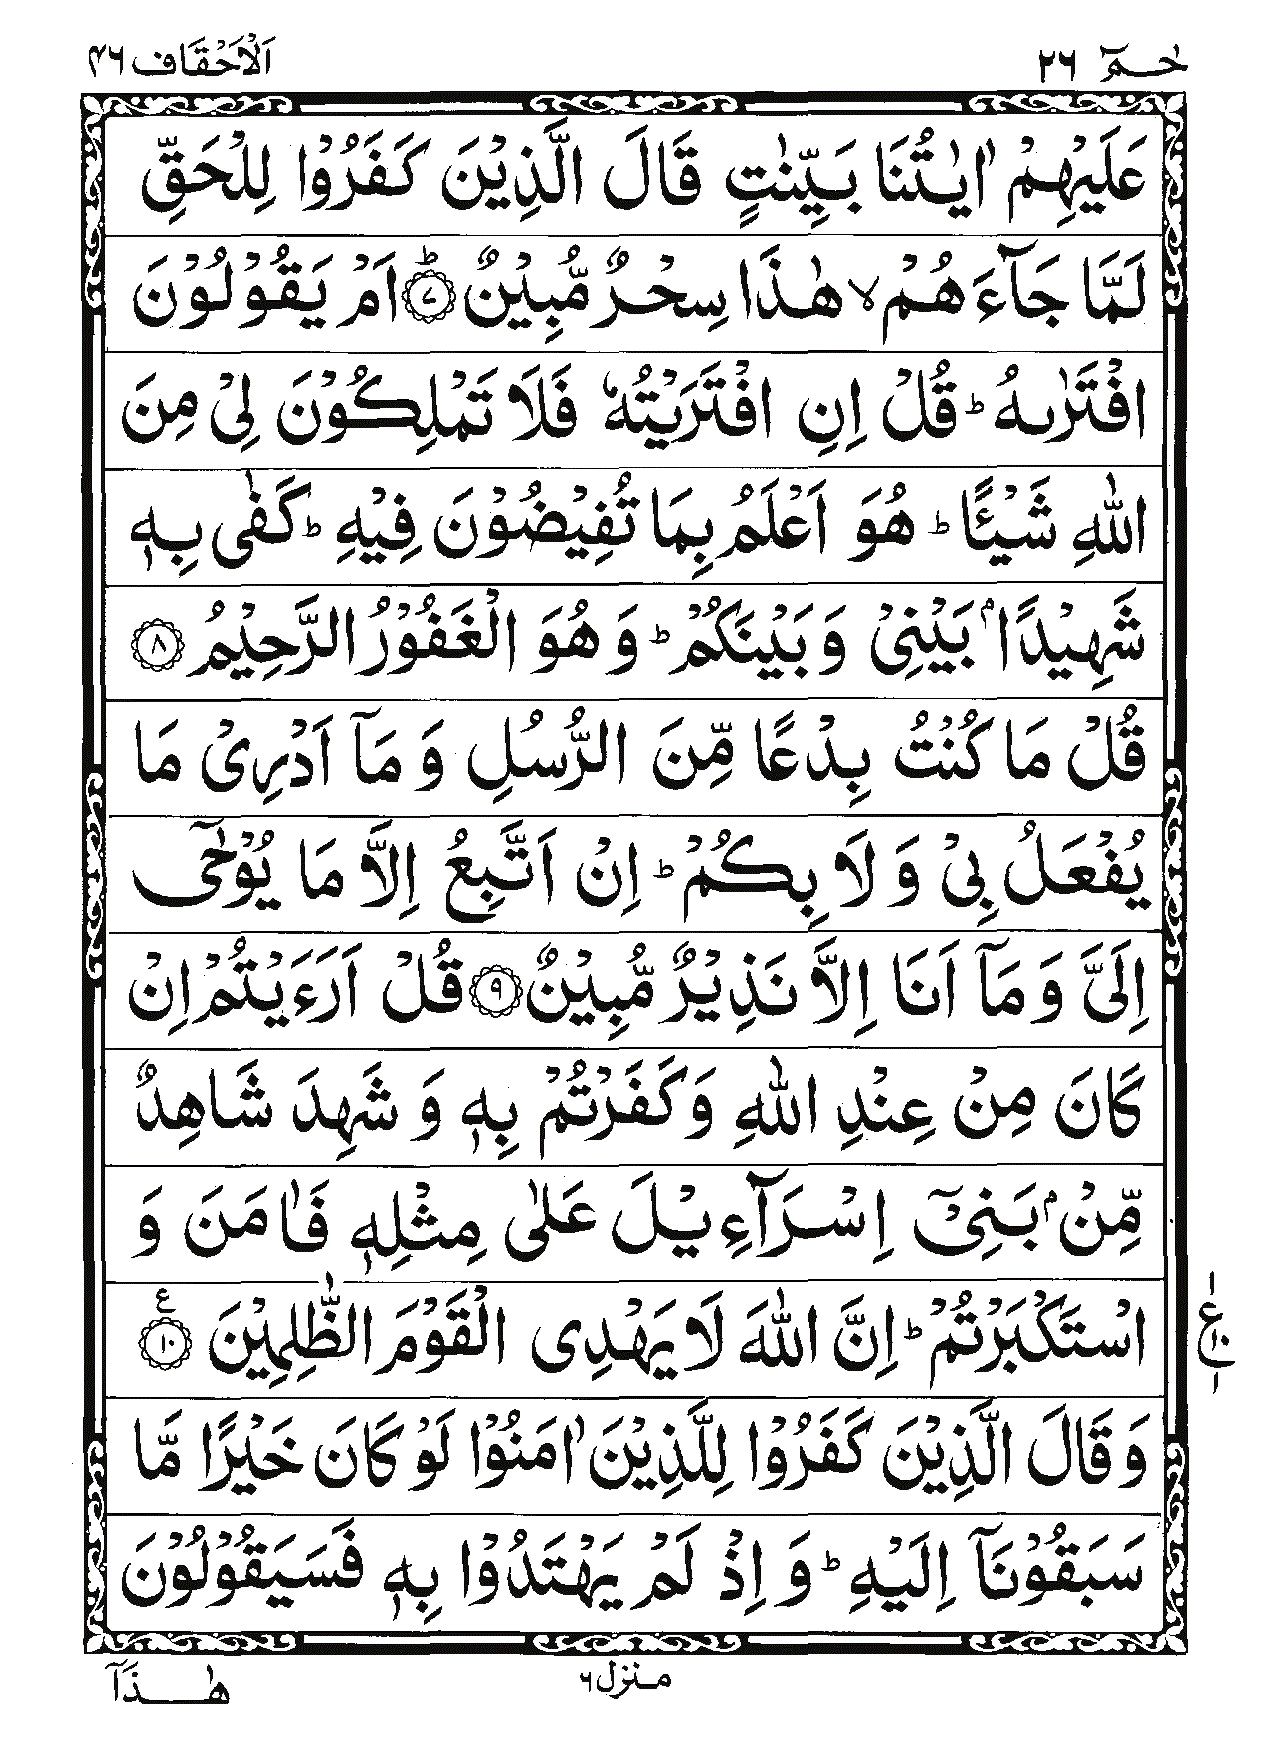 حٰـمٓ ٢٦ اَلْاَحْقَاف ٤٦
عَلَيْهِمْ اٰيٰتُنَا بَيِّنٰتٍ قَالَ الَّذِيْنَ كَفَرُوْا لِلْحَقِّ
لَمَّا جَآءَهُمْ ۙ هٰذَا سِحْرٌ مُّبِيْنٌ ؕ﴿٧﴾ اَمْ يَقُوْلُوْنَ
افْتَرٰىهُ ؕ قُلْ اِنِ افْتَرَيْتُهٗ فَلَا تَمْلِكُوْنَ لِيْ مِنَ
اللّٰهِ شَيْـًٔا ؕ هُوَ اَعْلَمُ بِمَا تُفِيْضُوْنَ فِيْهِ ؕ كَفٰى بِهٖ
شَهِيْدًۢا بَيْنِيْ وَبَيْنَكُمْ ؕ وَهُوَ الْغَفُوْرُ الرَّحِيْمُ ﴿٨﴾
قُلْ مَا كُنْتُ بِدْعًا مِّنَ الرُّسُلِ وَمَآ اَدْرِيْ مَا
يُفْعَلُ بِيْ وَلَا بِكُمْ ؕ اِنْ اَتَّبِعُ اِلَّا مَا يُوْحٰٓى
اِلَيَّ وَمَآ اَنَا اِلَّا نَذِيْرٌ مُّبِيْنٌ ﴿٩﴾ قُلْ اَرَءَيْتُمْ اِنْ
كَانَ مِنْ عِنْدِ اللّٰهِ وَكَفَرْتُمْ بِهٖ وَشَهِدَ شَاهِدٌ
مِّنْۢ بَنِيْٓ اِسْرَآءِيْلَ عَلٰى مِثْلِهٖ فَاٰمَنَ وَ
اسْتَكْبَرْتُمْ ؕ اِنَّ اللّٰهَ لَا يَهْدِى الْقَوْمَ الظّٰلِمِيْنَ ﴿١٠﴾ ع
١ ع ١٠ ١
وَقَالَ الَّذِيْنَ كَفَرُوْا لِلَّذِيْنَ اٰمَنُوْا لَوْ كَانَ خَيْرًا مَّا
سَبَقُوْنَآ اِلَيْهِ ؕ وَاِذْ لَمْ يَهْتَدُوْا بِهٖ فَسَيَقُوْلُوْنَ
منزل ٦
هٰـذَآ